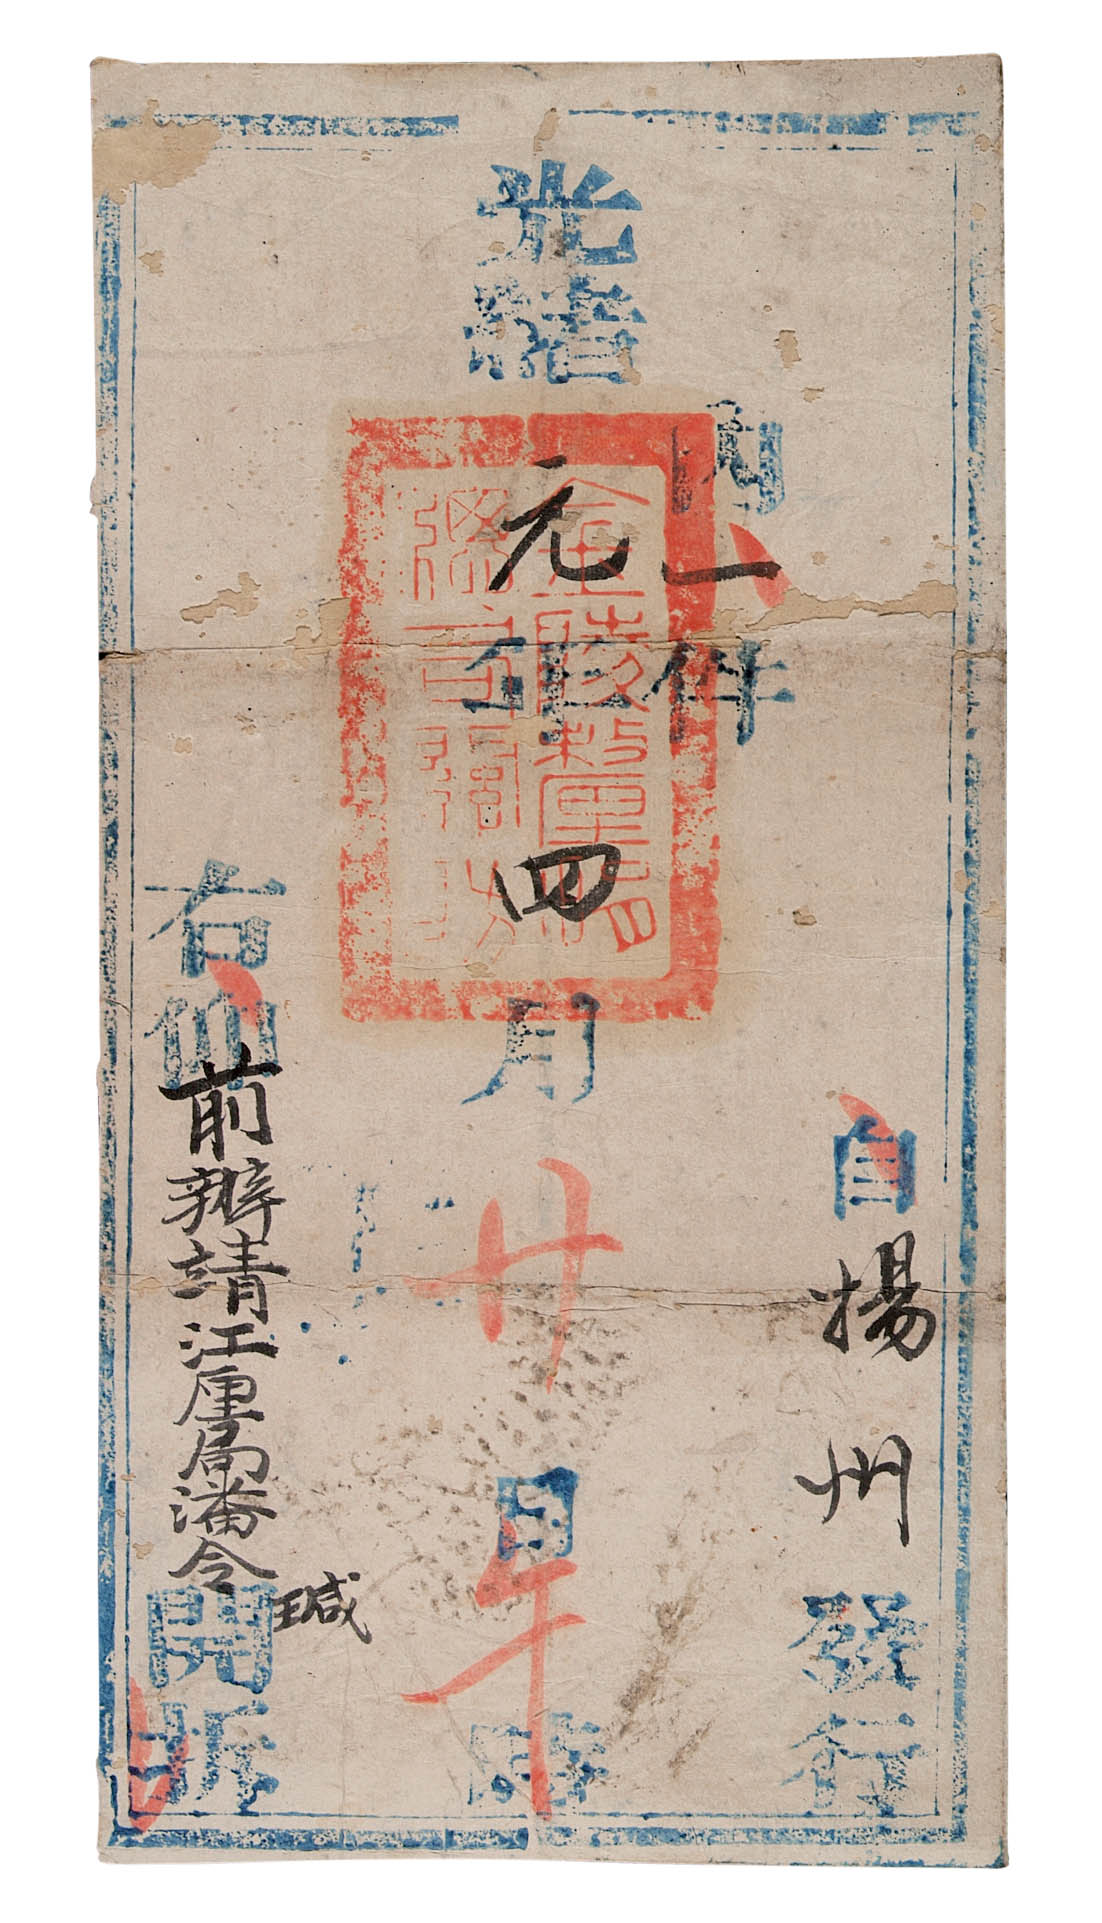 內一件
自揚州發行
光緒元年四月廿日午時
右仰前辦靖江厘局潘令瑊開拆